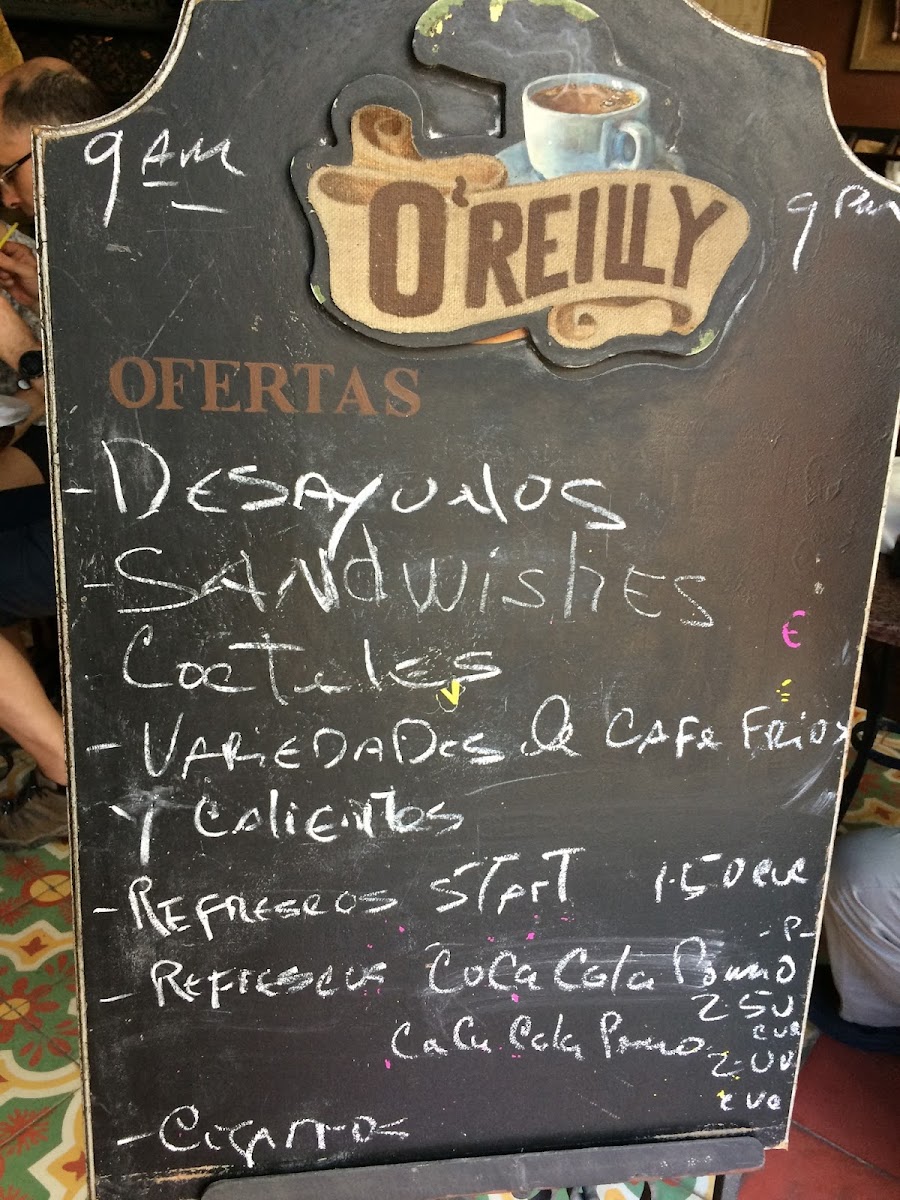 9 AM
O'REILLY
9 PM
OFERTAS
- DESAYUNOS
- SANDWISHES
COCTELES
- VARIEDADES de CAFE FRIOS
Y CALIENTES
- REFRESCOS START 1.50 CUC
- REFRESCOS COCA COLA
2.50
CUC
COCA COLA
2.00
CUC
- CIGARROS